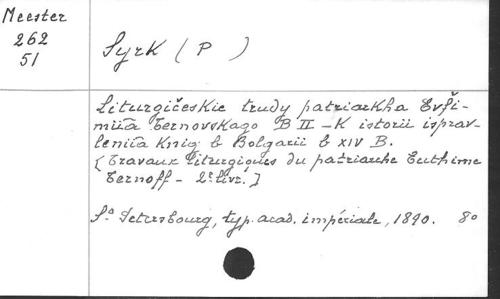 Meester
262
51
Syrk ( P )
Liturgičeskie trudy patriarkha Evfi-
miia Ternovskago B II - K istorii isprav-
leniia Knig b Bolgarii b XIV B.
[Travaux liturgiques du patriarche Euthime
Ternoff - 2e livr.]
St Petersbourg, typ. acad. impériale, 1890. 8o